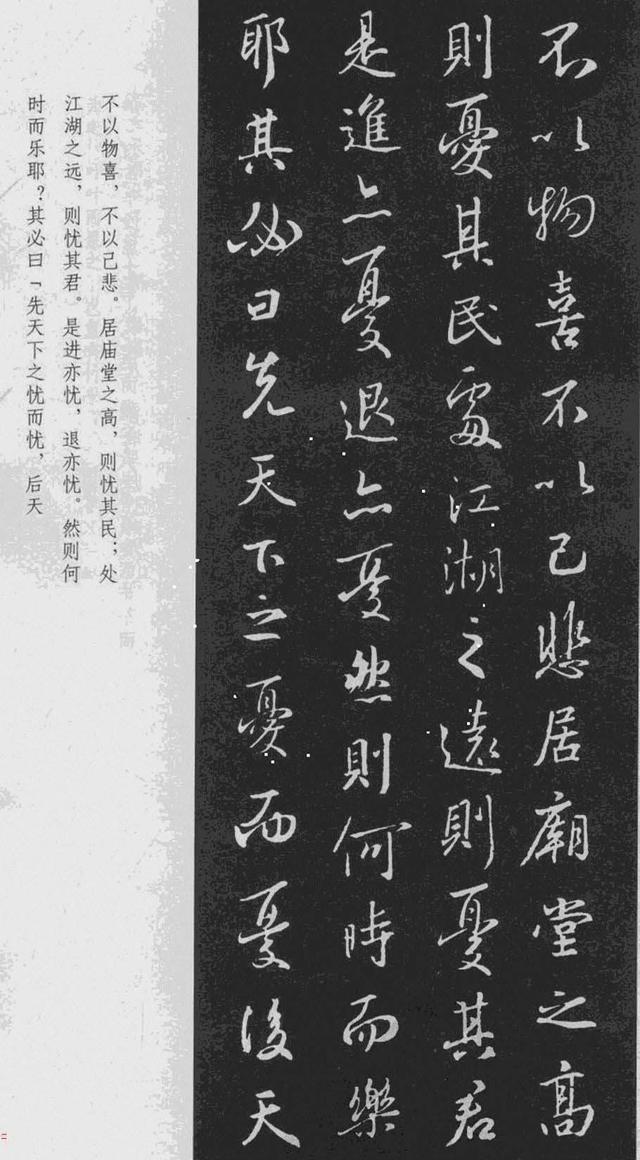 不以物喜不以己悲居廟堂之高
則憂其民處江湖之遠則憂其君
是進亦憂退亦憂然則何時而樂
耶其必曰先天下之憂而憂後天
不以物喜，不以己悲。居庙堂之高，则忧其民；处
江湖之远，则忧其君。是进亦忧，退亦忧。然则何
时而乐耶？其必曰「先天下之忧而忧，后天